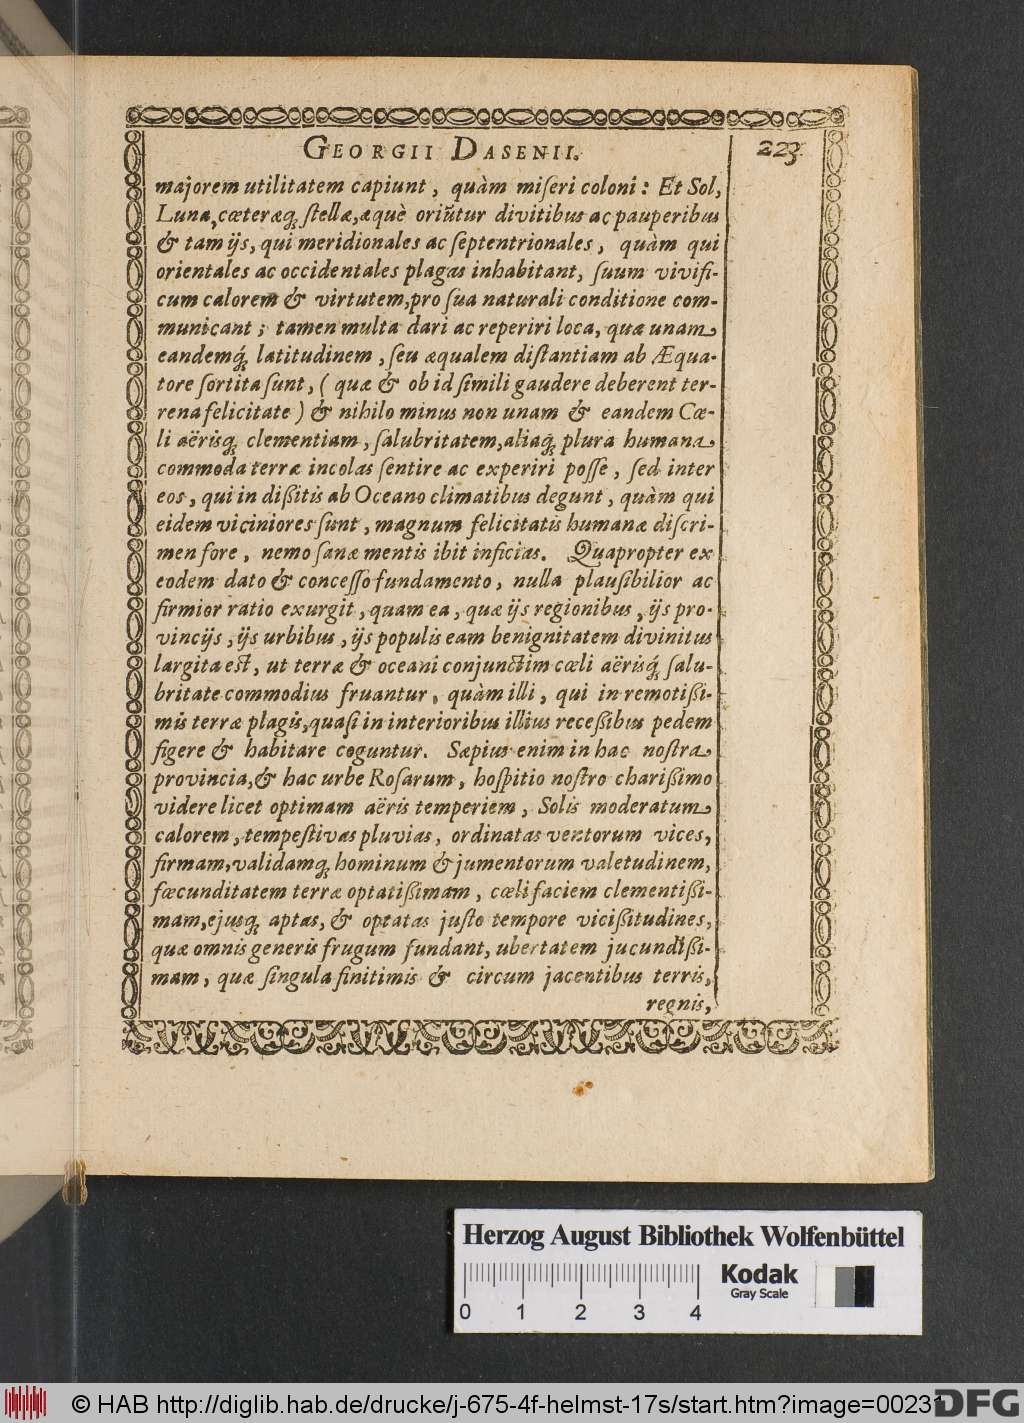 GEORGII DASENII. 223.
majorem utilitatem capiunt, quàm miseri coloni: Et Sol,
Luna, cœteræq́ꝫ stellæ, æquè oriũtur divitibus ac pauperibus
& tam ijs, qui meridionales ac septentrionales, quàm qui
orientales ac occidentales plagas inhabitant, suum vivifi-
cum calorem & virtutem, pro sua naturali conditione com-
municant; tamen multa dari ac reperiri loca, quæ unam
eandemq́ꝫ latitudinem, seu æqualem distantiam ab Æqua-
tore sortita sunt, (quæ & ob id simili gaudere deberent ter-
rena felicitate) & nihilo minus non unam & eandem Cœ-
li aërisq́ꝫ clementiam, salubritatem, aliaq́ꝫ plura humana
commoda terræ incolas sentire ac experiri posse, sed inter
eos, qui in dißitis ab Oceano climatibus degunt, quàm qui
eidem viciniores sunt, magnum felicitatis humanæ discri-
men fore, nemo sanæ mentis ibit inficias. Quapropter ex
eodem dato & concesso fundamento, nulla plausibilior ac
firmior ratio exurgit, quam ea, quæ ijs regionibus, ijs pro-
vincijs, ijs urbibus, ijs populis eam benignitatem divinitus
largita est, ut terræ & oceani conjunctim cœli aërisq́ꝫ salu-
britate commodius fruantur, quàm illi, qui in remotißi-
mis terræ plagis, quasi in interioribus illius receßibus pedem
figere & habitare coguntur. Sæpius enim in hac nostra
provincia, & hac urbe Rosarum, hospitio nostro charißimo
videre licet optimam aëris temperiem, Solis moderatum
calorem, tempestivas pluvias, ordinatas ventorum vices,
firmam, validamq́ꝫ hominum & jumentorum valetudinem,
fœcunditatem terræ optatißimam, cœli faciem clementißi-
mam, ejusq́ꝫ aptas, & optatas justo tempore vicißitudines,
quæ omnis generis frugum fundant, ubertatem jucundißi-
mam, quæ singula finitimis & circum jacentibus terris,
regnis,
Herzog August Bibliothek Wolfenbüttel
0 1 2 3 4
Kodak
Gray Scale
© HAB http://diglib.hab.de/drucke/j-675-4f-helmst-17s/start.htm?image=00231
DFG